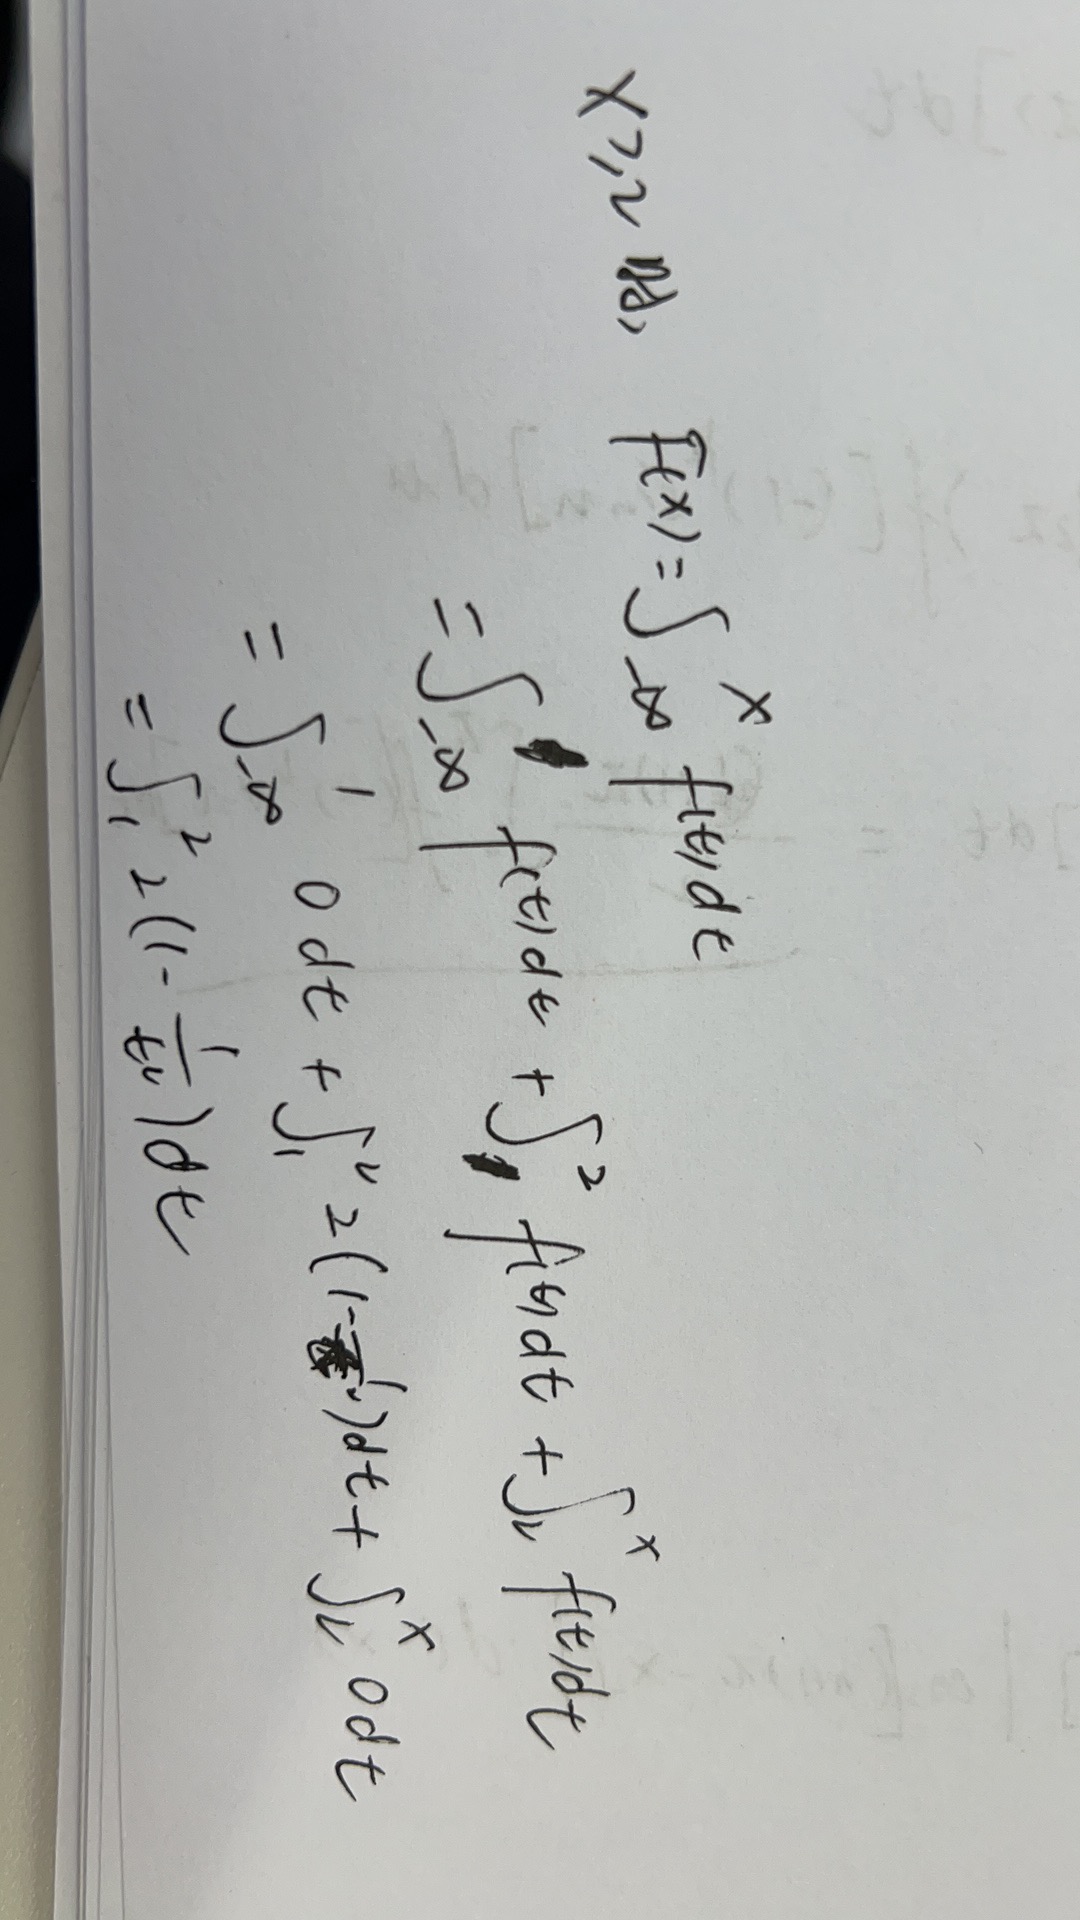 x≥2时, F(x)=∫_{-∞}^{x} f(t)dt
=∫_{-∞} f(t)dt + ∫^{2} f(t)dt + ∫_{2}^{x} f(t)dt
=∫_{-∞}^{1} 0 dt + ∫_{1}^{2} 2(1-1/t²)dt + ∫_{2}^{x} 0dt
=∫_{1}^{2} 2(1-1/t²)dt